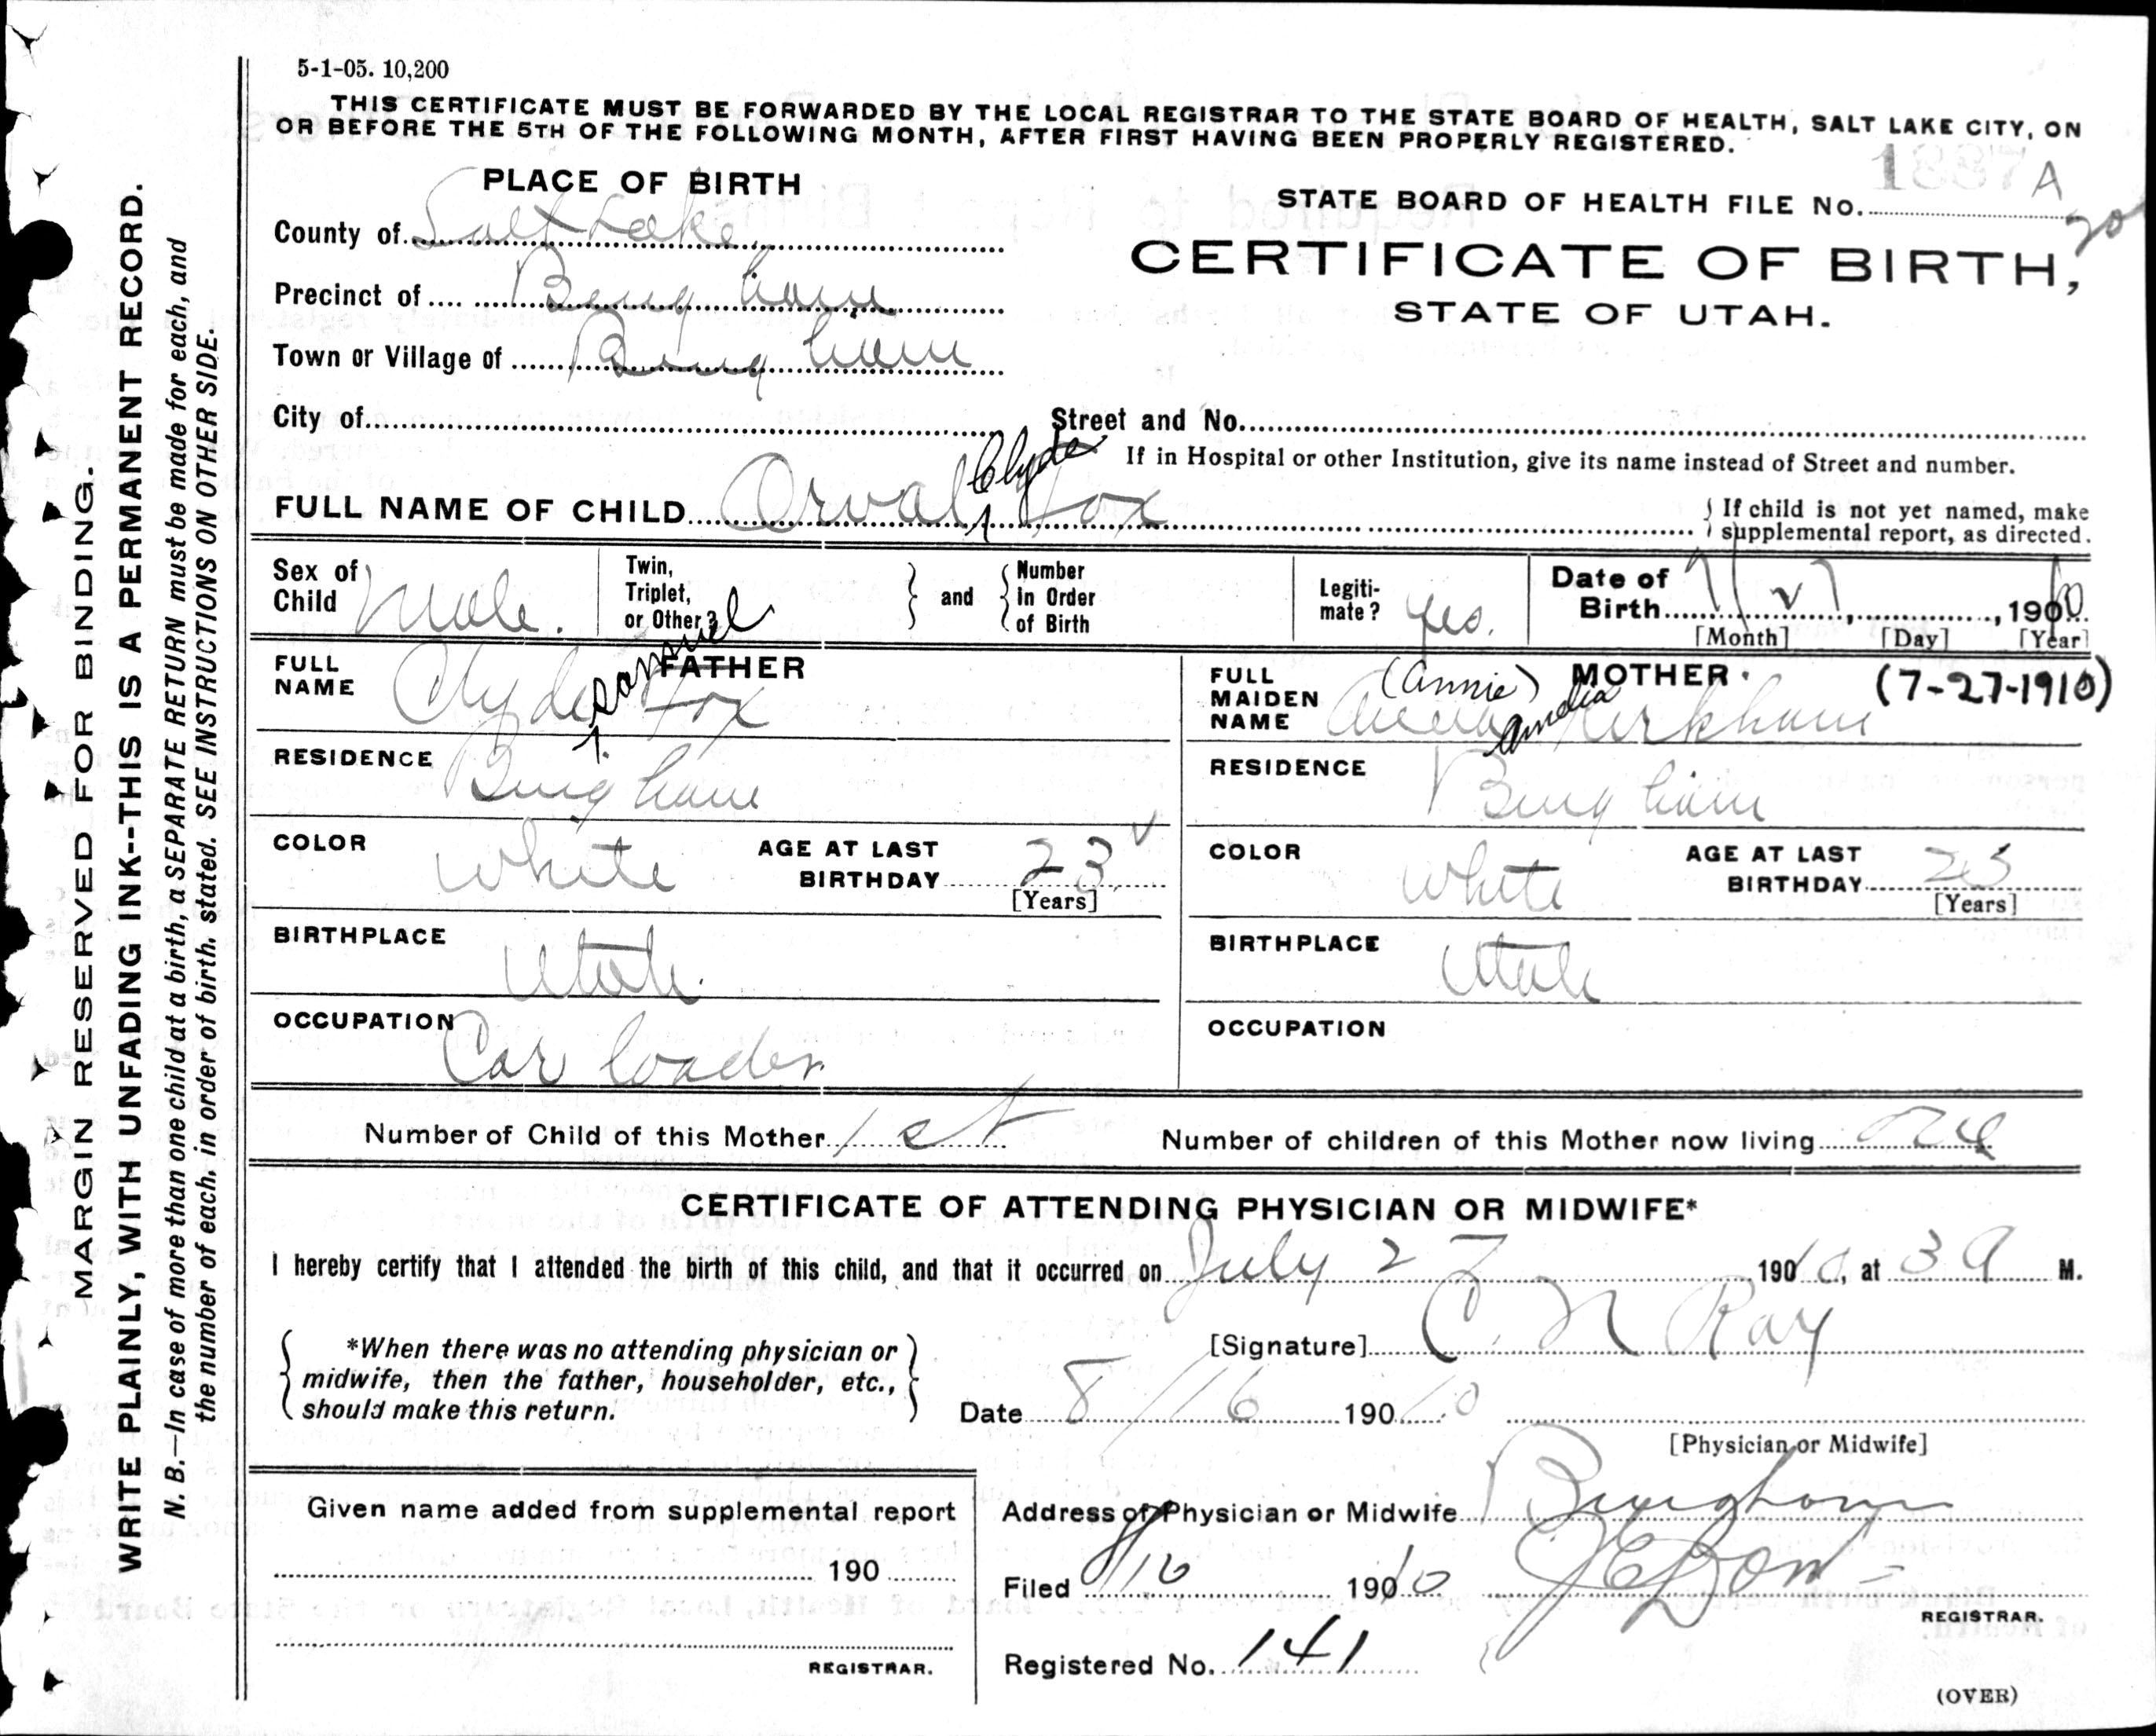 5-1-05. 10,200
THIS CERTIFICATE MUST BE FORWARDED BY THE LOCAL REGISTRAR TO THE STATE BOARD OF HEALTH, SALT LAKE CITY, ON
OR BEFORE THE 5TH OF THE FOLLOWING MONTH, AFTER FIRST HAVING BEEN PROPERLY REGISTERED.
PLACE OF BIRTH
County of Salt Lake
Precinct of Bingham
Town or Village of Bingham
City of
STATE BOARD OF HEALTH FILE No. 1887 A
20
CERTIFICATE OF BIRTH,
STATE OF UTAH.
Street and No.
If in Hospital or other Institution, give its name instead of Street and number.
FULL NAME OF CHILD Orval Clyde Fox
If child is not yet named, make
supplemental report, as directed.
Sex of Child Male.
Twin, Triplet, or Other?
and
Number in Order of Birth
Legitimate? yes.
Date of Birth 7/27, 1910
[Month] [Day] [Year]
(7-27-1910)
FATHER
FULL NAME Clyde Samuel Fox
RESIDENCE Bingham
COLOR White
AGE AT LAST BIRTHDAY 23
[Years]
BIRTHPLACE Utah.
OCCUPATION Car loader
MOTHER.
FULL MAIDEN NAME (Annie) Amelia Kirkham
RESIDENCE Bingham
COLOR White
AGE AT LAST BIRTHDAY 23
[Years]
BIRTHPLACE Utah
OCCUPATION
Number of Child of this Mother 1st
Number of children of this Mother now living one
CERTIFICATE OF ATTENDING PHYSICIAN OR MIDWIFE*
I hereby certify that I attended the birth of this child, and that it occurred on July 27 1910, at 3 A M.
*When there was no attending physician or
midwife, then the father, householder, etc.,
should make this return.
[Signature] C. N Ray
Date 8/16 1910
[Physician or Midwife]
Given name added from supplemental report
190
REGISTRAR.
Address of Physician or Midwife Bingham
Filed 8/16 1910
REGISTRAR.
Registered No. 141
(OVER)
MARGIN RESERVED FOR BINDING.
WRITE PLAINLY, WITH UNFADING INK--THIS IS A PERMANENT RECORD.
N. B.—In case of more than one child at a birth, a SEPARATE RETURN must be made for each, and
the number of each, in order of birth, stated. SEE INSTRUCTIONS ON OTHER SIDE.